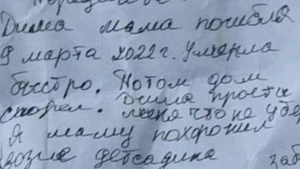 Дима мама погибла
9 марта 2022 г. Умерла
быстро. Потом дом
сгорел. Дима прости
меня что не убе
Я маму похоронил
возле детсадика